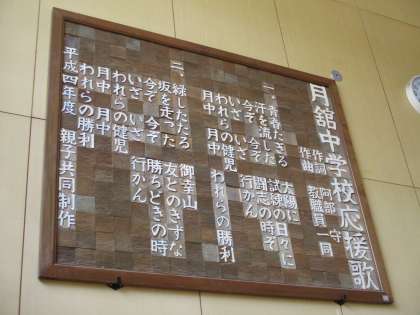 月舘中学校応援歌
作詞 阿部 守
作曲 教職員一同
一、青春たぎる 太陽に
汗を流した 試練の日々に
今ぞ 今ぞ 闘志の時ぞ
いざ いざ 行かん
われらの健児 われらの勝利
月中 月中
二、緑したたる 御幸山
坂を走った 友とのきずな
今ぞ 今ぞ 勝ちどきの時
いざ いざ 行かん
われらの健児
われらの勝利
月中 月中
平成四年度 親子共同制作